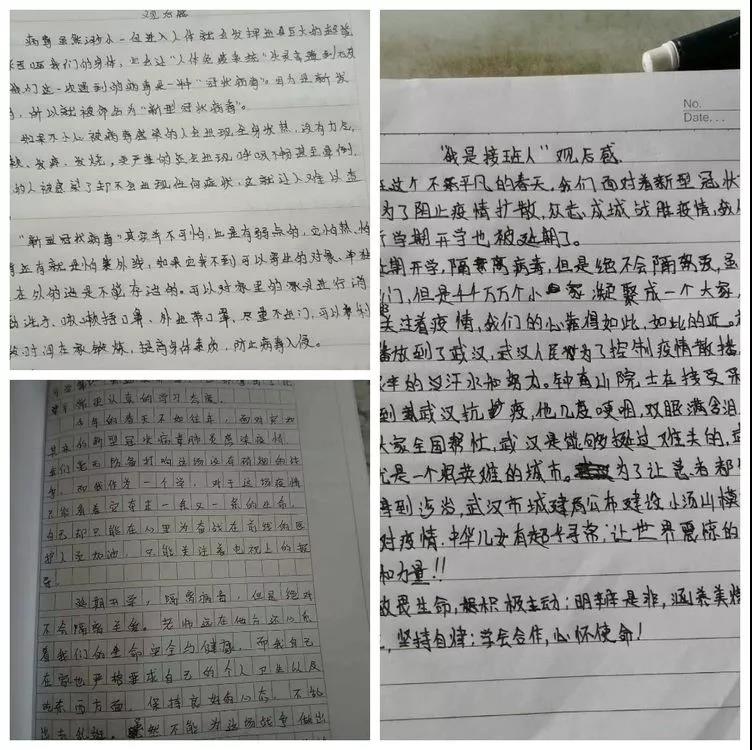 观后感
病毒虽然渺小一但进入人体就会发挥出巨大的
我们的身体,
我们这一次遇到的病毒是一种"冠状病毒"。因为是新发
所以就被命名为"新型冠状病毒"。
如果不小心被病毒感染的人会出现全身发热,没有力气,
发麻、发烧,更严重的会出现呼吸不畅甚至晕倒,
的人被感染了却不会出现任何症状,这就让人难以查
"新型冠状病毒"其实并不可怕,也是有弱点的,它怕热,怕
还有就是怕紫外线,如果它找不到可以寄生的对象,单独
在外的话是不能存活的。可以对家里的家具进行消
洗手、咳嗽捂口罩、外出带口罩,尽量不出门,可以利
时间在家锻炼,提高身体素质,防止病毒入侵。
更认真的学习态度。
今年的春天不如往年,面对突如
其来的新型冠状病毒肺炎感染疫情
我们毫无防备打响这场没有硝烟的战
争,而我作为一个学,对于这场疫情
只能看着它夺走一条又一条的生命,
自己却只能在心里为奋战在前线的医
护人员加油,只能关注着电视上的报
导。
延期开学,隔离病毒,但是绝对
不会隔离关爱。老师远在他方还心系
着我们的生命安全与健康,而我自己
在家也严格要求自己的个人卫生以及
吃东西方面,保持良好的心态,不
出去
然不能为这场战争做出
No.
Date...
"我是接班人"观后感
在这个不平凡的春天,我们面对着新型冠状
为了阻止疫情扩散,众志成城战胜疫情,
新学期开学也被延期了。
延期开学,隔离病毒,但是绝不会隔离爱,虽
门,但是千千万万个小家凝聚成一个大家,
关注着疫情,我们的心靠得如此,如此的近。
播放到了武汉,武汉人民为了控制疫情散播,
的汉汗水和努力。钟南山院士在接受采
到武汉抗疫,他几度哽咽,双眼满含泪
大家全国帮忙,武汉是能够挺过难关的,武
就是一个很英雄的城市。为了让患者都
得到治,武汉市城建局公布建设小汤山模
对疫情,中华儿女有超乎寻常,让世界震惊的
和力量!!
敬畏生命,积极主动;明辨是非,涵养美
坚持自律;学会合作,心怀使命!